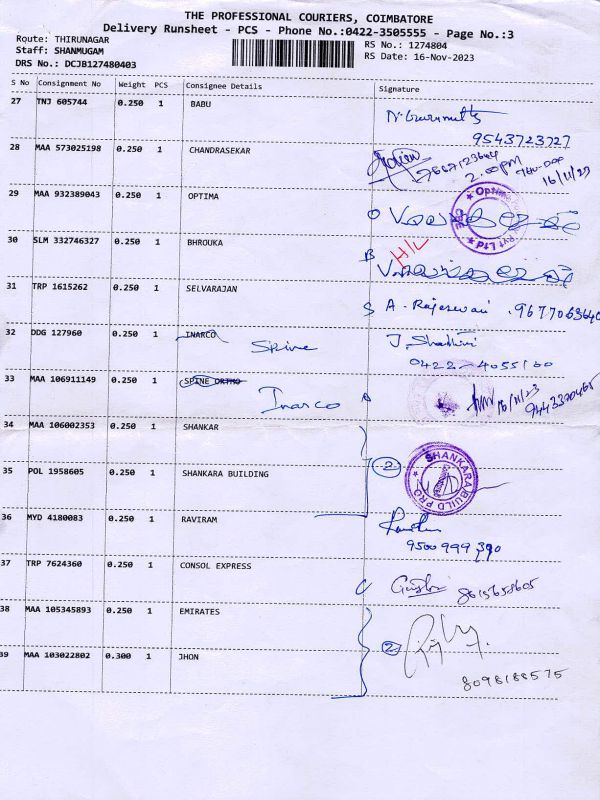 THE PROFESSIONAL COURIERS, COIMBATORE
Delivery Runsheet - PCS - Phone No.:0422-3505555 - Page No.:3
Route: THIRUNAGAR
Staff: SHANMUGAM
DRS No.: DCJB127480403
RS No.: 1274804
RS Date: 16-Nov-2023
S No Consignment No Weight PCS Consignee Details Signature
27 TNJ 605744 0.250 1 BABU
9543723727
28 MAA 573025198 0.250 1 CHANDRASEKAR
7667123644
2.00PM
16/11/23
29 MAA 932389043 0.250 1 OPTIMA
O
30 SLM 332746327 0.250 1 BHROUKA
B H/L
31 TRP 1615262 0.250 1 SELVARAJAN
S A. Rajeswari . 9677063640
32 DDG 127960 0.250 1 INARCO
Spine
0422 - 4055100
33 MAA 106911149 0.250 1 SPINE ORTHO
Inarco
16/11/23
34 MAA 106002353 0.250 1 SHANKAR
2
SHANKARA BUILD PRO
35 POL 1958605 0.250 1 SHANKARA BUILDING
36 MYD 4180083 0.250 1 RAVIRAM
9500 999 390
37 TRP 7624360 0.250 1 CONSOL EXPRESS
C
38 MAA 105345893 0.250 1 EMIRATES
2
39 MAA 103022802 0.300 1 JHON
8098188575